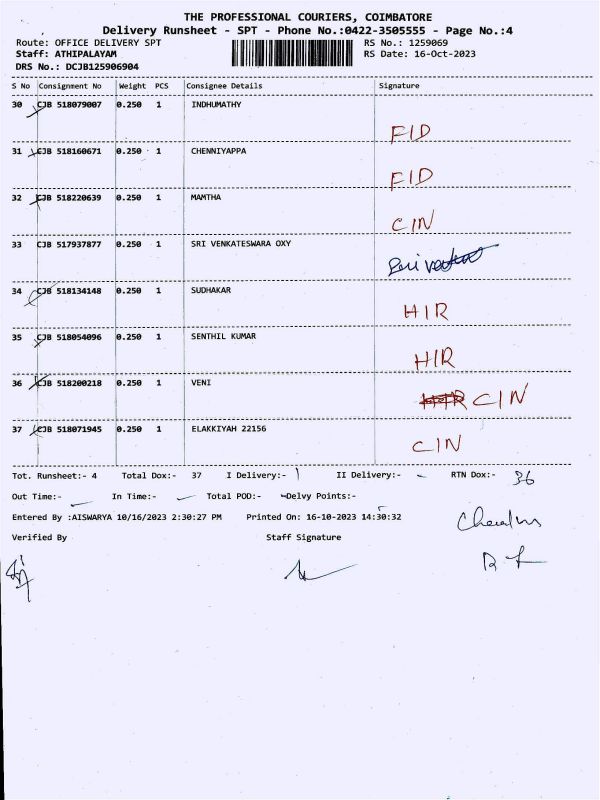 THE PROFESSIONAL COURIERS, COIMBATORE
Delivery Runsheet - SPT - Phone No.:0422-3505555 - Page No.:4
Route: OFFICE DELIVERY SPT RS No.: 1259069
Staff: ATHIPALAYAM RS Date: 16-Oct-2023
DRS No.: DCJB125906904
S No Consignment No Weight PCS Consignee Details Signature
30 CJB 518079007 0.250 1 INDHUMATHY
FID
31 CJB 518160671 0.250 1 CHENNIYAPPA
FID
32 CJB 518220639 0.250 1 MAMTHA
CIN
33 CJB 517937877 0.250 1 SRI VENKATESWARA OXY
34 CJB 518134148 0.250 1 SUDHAKAR
HIR
35 CJB 518054096 0.250 1 SENTHIL KUMAR
HIR
36 CJB 518200218 0.250 1 VENI
CIN
37 CJB 518071945 0.250 1 ELAKKIYAH 22156
CIN
Tot. Runsheet:- 4 Total Dox:- 37 I Delivery:- 1 II Delivery:- - RTN Dox:- 36
Out Time:- In Time:- Total POD:- Delvy Points:-
Entered By :AISWARYA 10/16/2023 2:30:27 PM Printed On: 16-10-2023 14:30:32
Verified By Staff Signature